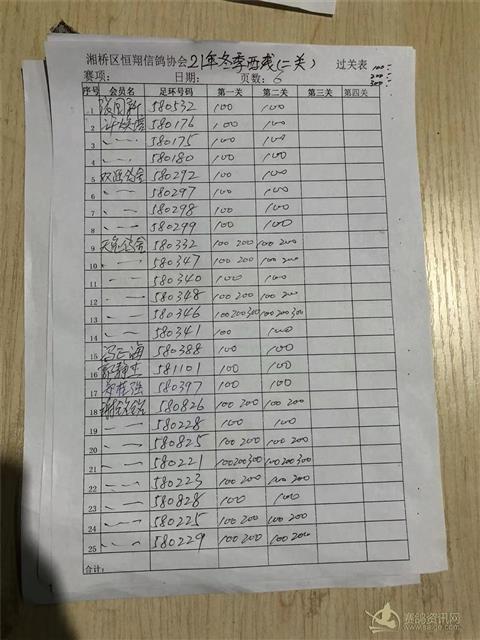 湘桥区恒翔信鸽协会21年冬季两残(二关) 过关表 100
200
300
赛项： 日期： 页数：6
序号 会员名 足环号码 第一关 第二关 第三关 第四关
1 580532 100 100
2 580176 100 100
3 580175 100 100
4 580180 100 100
5 580292 100 100
6 580297 100 100
7 580298 100 100
8 580299 100 100
9 580332 100 200 100 200
10 580347 100 200 100 200
11 580340 100 100
12 580348 100 200 100 200
13 580346 100 200 300 100 200 300
14 580341 100 100
15 580388 100 100
16 581101 100 100
17 580397 100 100
18 580826 100 200 100 200
19 580228 100 100
20 580825 100 200 100 200
21 580221 100 200 300 100 200 300
22 580223 100 200 100 200
23 580828 100 100
24 580225 100 200 100 200
25 580229 100 200 100 200
合计：
赛鸽资讯网
www.saige.com